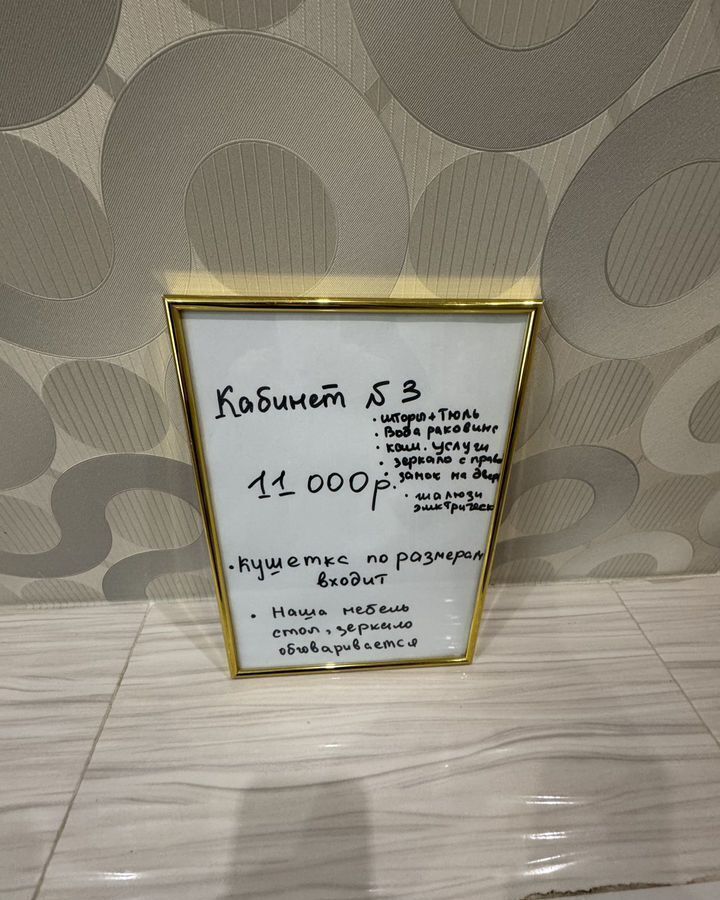 Кабинет № 3
• шторы + Тюль
• Вода раковине
• ком. услуги
• зеркало с
• замок на
11 000р.
• жалюзи
• кушетка по размерам
входит
• Наша мебель
стол, зеркало
обговаривается